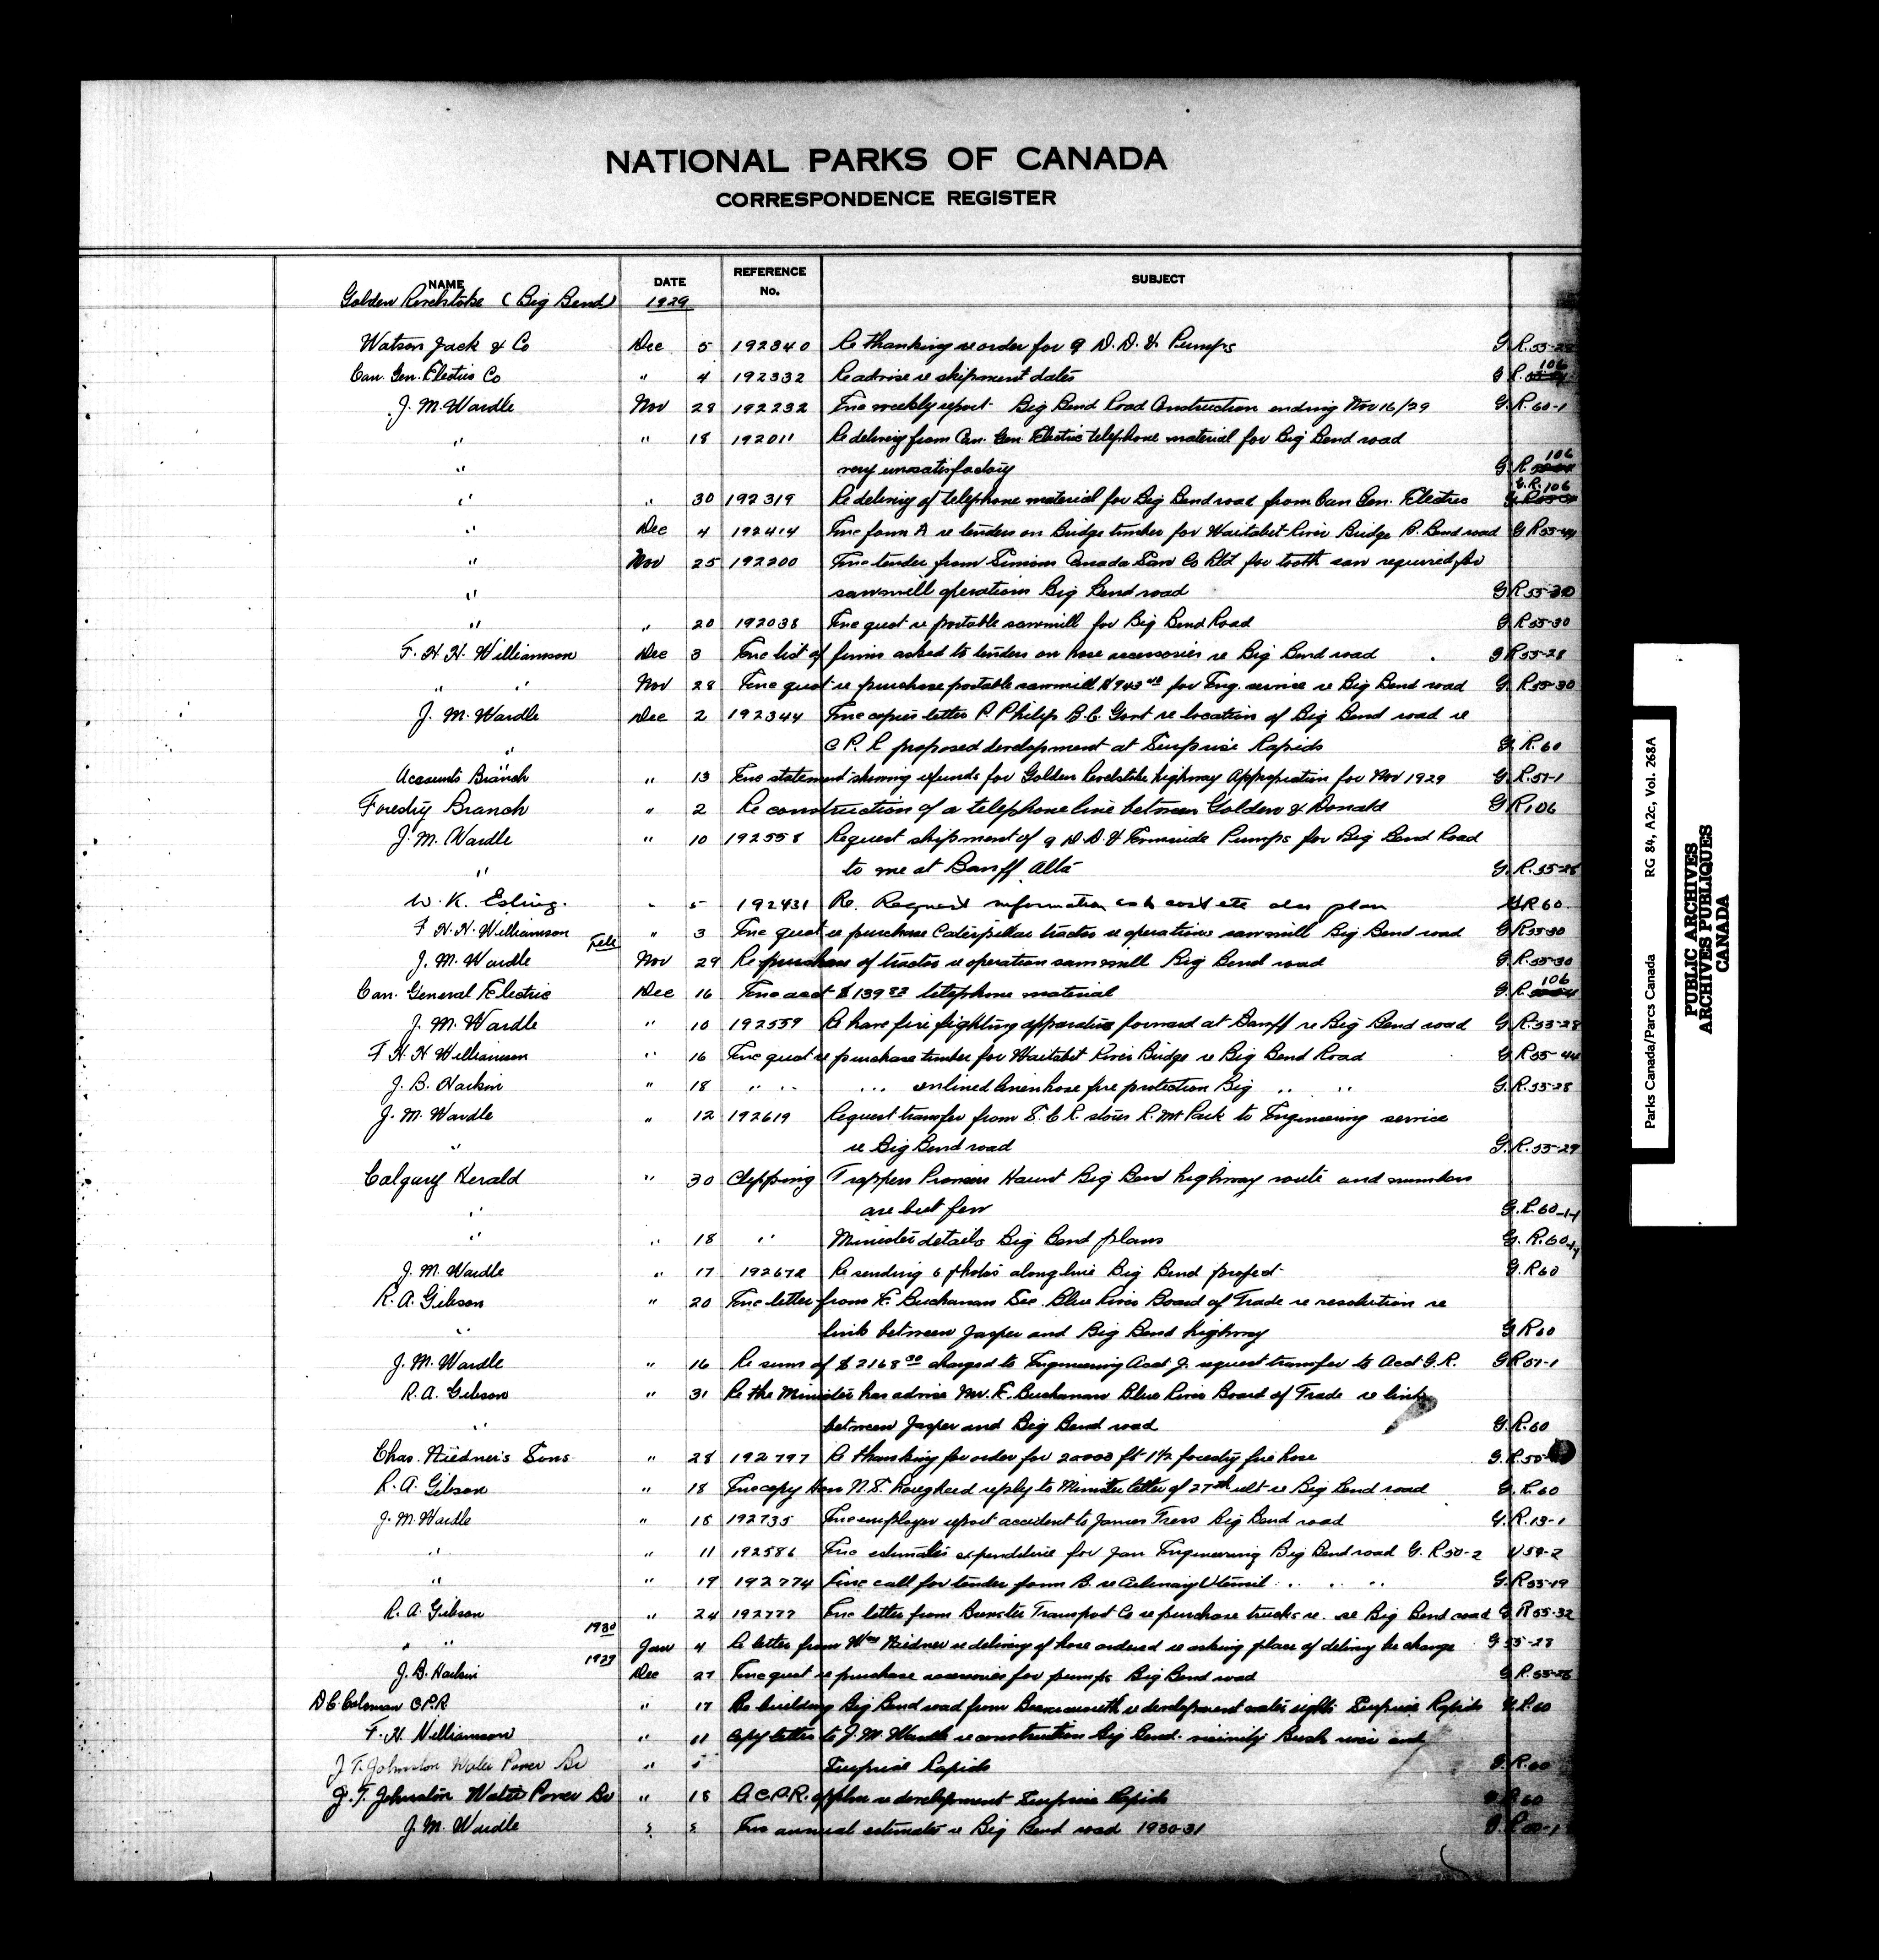 NATIONAL PARKS OF CANADA
CORRESPONDENCE REGISTER
NAME DATE REFERENCE No. SUBJECT
Golden Revelstoke (Big Bend) 1929
Watson Jack & Co Dec 5 192340 Re thanking re order for 9 N.D.&. Pumps G.R. 55-28
Can. Gen. Electric Co " 4 192332 Re advise re shipment dates G.R. 106
J. M. Wardle Nov 28 192232 Enc weekly report Big Bend Road Construction ending Nov 16/29 G.R. 60-1
" " 18 192011 Re delivery from Can. Gen. Electric telephone material for Big Bend road
" very unsatisfactory G.R. 106
" " 30 192319 Re delivery of telephone material for Big Bend road from Can Gen. Electric G.R. 106
" Dec 4 192414 Enc form A re tenders on Bridge timber for Waitabit River Bridge B. Bend road G R 55-44
" Nov 25 192200 Enc tender from Simons Canada Saw Co Ltd for tooth saw required for
" sawmill operations Big Bend road G R 55-30
" " 20 192038 Enc quot re portable sawmill for Big Bend Road G. R 55-30
F. H. H. Williamson Dec 3 Enc list of firms asked to tenders on hose accessories re Big Bend road G R 55-28
" " Nov 28 Enc quot re purchase portable sawmill $943 for Eng. service re Big Bend road G. R 55-30
J. M. Wardle Dec 2 192344 Enc copies letter P. Philip B.C. Govt re location of Big Bend road re
" C P. R proposed development at Surprise Rapids G. R. 60
Accounts Branch " 13 Enc statement showing refunds for Golden Revelstoke highway Appropriation for Nov 1929 G. R. 51-1
Forestry Branch " 2 Re construction of a telephone line between Golden & Donald G R 106
J. M. Wardle " 10 192558 Request shipment of 9 N.D.& Pumps for Big Bend Road
" to me at Banff Alta G. R. 55-28
W. K. Esling. " 5 192431 Re. Request information cost etc also plan G R 60.
F H. H. Williamson " 3 Enc quot re purchase Caterpillar tractor re operations sawmill Big Bend road G R 55-30
J. M. Wardle Nov 29 Re purchase of tractor re operation sawmill Big Bend road G. R. 55-30
Can. General Electric Dec 16 Enc acct $139 telephone material G. R 106
J. M. Wardle " 10 192559 Re have fire fighting apparatus forward at Banff re Big Bend road G. R. 55-28
F H. H Williamson " 16 Enc quot re purchase timber for Waitabit River Bridge re Big Bend Road G. R 55-44
J. B. Harkin " 18 " " " unlined linen hose fire protection Big " " G. R. 55-28
J. M. Wardle " 12 192619 Request transfer from stores R. Mt Park to Engineering service
" re Big Bend road G. R. 55-29
Calgary Herald " 30 Clipping Trappers Pioneers Haunt Big Bend highway route and numbers
" are but few G. R. 60-14
" " 18 " Minister details Big Bend plans G. R. 60-14
J. M. Wardle " 17 192672 Re sending 6 photos along line Big Bend project G. R 60
R. A. Gibson " 20 Enc letter from F. Buchanan Sec. Blue River Board of Trade re resolution re
" link between Jasper and Big Bend highway G R 60
J. M. Wardle " 16 Re sum of $2168 charged to Engineering Acct J. request transfer to Acct G.R. G R 51-1
R. A. Gibson " 31 Re the Minister has advise Mr. F. Buchanan Blue River Board of Trade re link
" between Jasper and Big Bend road G. R. 60
Chas. Niedner's Sons " 28 192797 Re thanking for order for 20000 ft 1½ forestry fire hose G. R. 55-
R. A. Gibson " 18 Enc copy Hon N.S. Lougheed reply to Minister letter of 27th ult re Big Bend road G. R. 60
J. M. Wardle " 18 192735 Enc employer report accident to James Big Bend road G. R. 13-1
" " 11 192586 Enc estimates expenditure for Jan Engineering Big Bend road G. R 50-2 U 59-2
" " 19 192774 Enc call for tender form B. re Culinary Utensil " " " G. R 55-19
R. A. Gibson " 24 192777 Enc letter from Brewster Transport Co re purchase trucks re. re Big Bend road G R 55-32
" " 1930 Jan 4 Re letter from Niedner re delivery of hose ordered re asking place of delivery be change G 55-28
J. B. Harkin 1929 Dec 27 Enc quot re purchase accessories for pumps Big Bend road G. R. 55-28
D. C. Coleman C.P.R " 17 Re building Big Bend road from Beavermouth re development water rights Surprise Rapids G. R. 60
F. H. Williamson " 11 Copy letter to J. M. Wardle re construction Big Bend vicinity Bush river and
J. T. Johnston Water Power Br " Surprise Rapids G. R. 60
J. T. Johnston Water Power Br " 18 Re C.P.R. applen re development Surprise Rapids G. R 60
J. M. Wardle Enc annual estimates re Big Bend road 1930-31
Parks Canada/Parcs Canada RG 84, A2c, Vol. 268A
PUBLIC ARCHIVES
ARCHIVES PUBLIQUES
CANADA